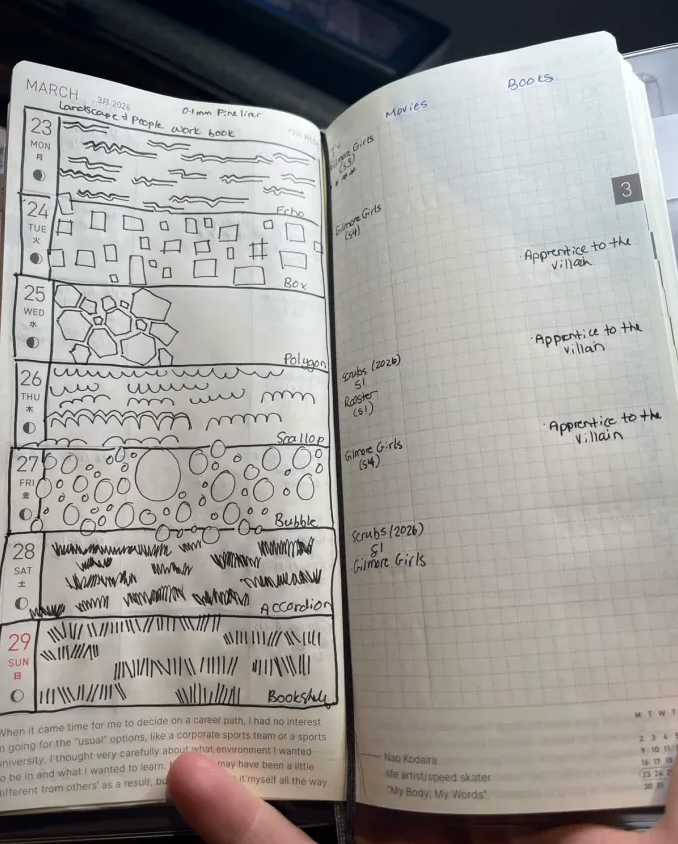 MARCH 3月 2026
0.1 mm Fineliner
Landscape & People work book
23
MON
月
Echo
24
TUE
火
Box
25
WED
水
Polygon
26
THU
木
Scallop
27
FRI
金
Bubble
28
SAT
土
ACCORDION
29
SUN
日
Bookshelf
When it came time for me to decide on a career path, I had no interest
in going for the "usual" options, like a corporate sports team or a sports
university. I thought very carefully about what environment I wanted
to be in and what I wanted to learn. may have been a little
different from others' as a result, but it myself all the way.
TV Movies Books
Gilmore Girls
(S3)
Gilmore Girls
(S4)
Apprentice to the
villain
Apprentice to the
villain
Scrubs (2026)
S1
Rooster
(S1)
Apprentice to the
villain
Gilmore Girls
(S4)
Scrubs (2026)
S1
Gilmore Girls
3
Nao Kodaira
life artist/speed skater
"My Body, My Words"
M T W T
2 3 4 5
9 10 11
16 17 18
23 24
30 31